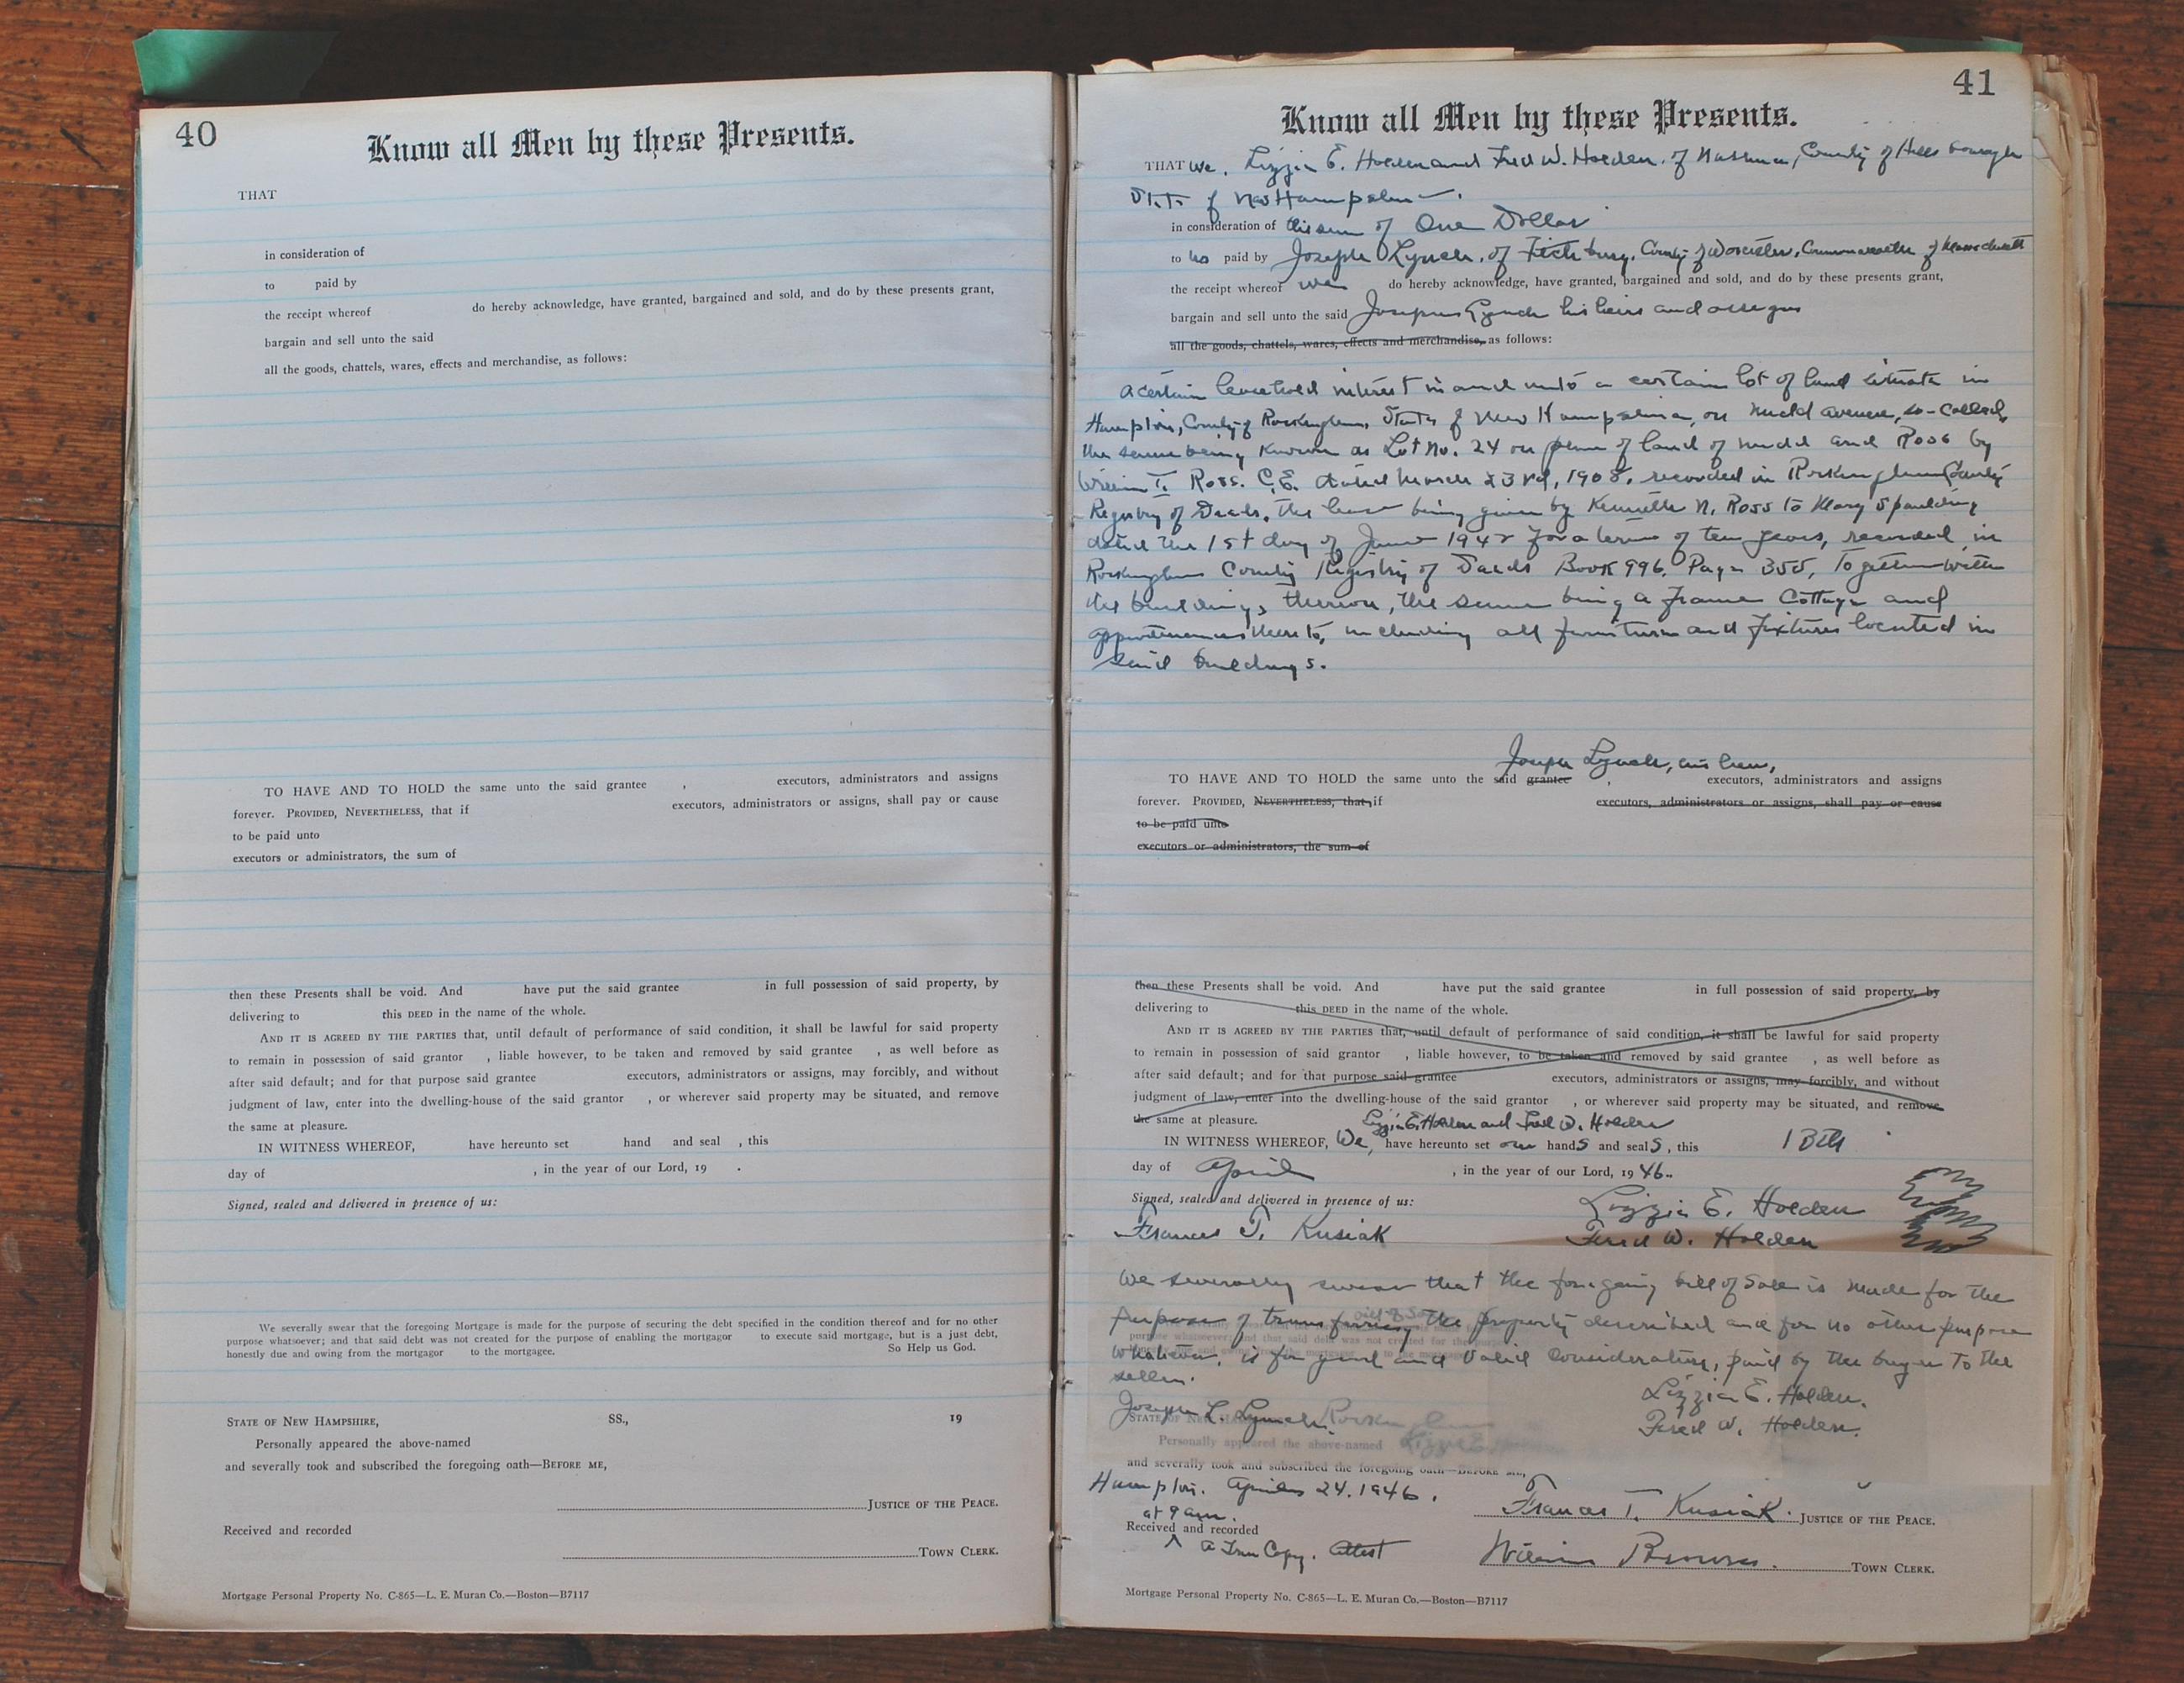 40
Know all Men by these Presents.
THAT
in consideration of
to paid by
the receipt whereof do hereby acknowledge, have granted, bargained and sold, and do by these presents grant,
bargain and sell unto the said
all the goods, chattels, wares, effects and merchandise, as follows:
TO HAVE AND TO HOLD the same unto the said grantee , executors, administrators and assigns
forever. PROVIDED, NEVERTHELESS, that if executors, administrators or assigns, shall pay or cause
to be paid unto
executors or administrators, the sum of
then these Presents shall be void. And have put the said grantee in full possession of said property, by
delivering to this DEED in the name of the whole.
AND IT IS AGREED BY THE PARTIES that, until default of performance of said condition, it shall be lawful for said property
to remain in possession of said grantor , liable however, to be taken and removed by said grantee , as well before as
after said default; and for that purpose said grantee executors, administrators or assigns, may forcibly, and without
judgment of law, enter into the dwelling-house of the said grantor , or wherever said property may be situated, and remove
the same at pleasure.
IN WITNESS WHEREOF, have hereunto set hand and seal , this
day of , in the year of our Lord, 19 .
Signed, sealed and delivered in presence of us:
We severally swear that the foregoing Mortgage is made for the purpose of securing the debt specified in the condition thereof and for no other
purpose whatsoever; and that said debt was not created for the purpose of enabling the mortgagor to execute said mortgage, but is a just debt,
honestly due and owing from the mortgagor to the mortgagee. So Help us God.
STATE OF NEW HAMPSHIRE, SS., 19
Personally appeared the above-named
and severally took and subscribed the foregoing oath—BEFORE ME,
JUSTICE OF THE PEACE.
Received and recorded
TOWN CLERK.
Mortgage Personal Property No. C-865—L. E. Muran Co.—Boston—B7117
41
Know all Men by these Presents.
THAT We, Lizzie E. Holden and Fred W. Holden, of Nashua, County of Hillsborough
State of New Hampshire.
in consideration of the sum of One Dollar
to us paid by Joseph Lynch, of Fitchburg, County of Worcester, Commonwealth of Massachusetts
the receipt whereof we do hereby acknowledge, have granted, bargained and sold, and do by these presents grant,
bargain and sell unto the said Joseph Lynch his heirs and assigns
all the goods, chattels, wares, effects and merchandise, as follows:
A certain leasehold interest in and unto a certain lot of land situate in
Hampton, County of Rockingham, State of New Hampshire, on Nudd Avenue, so-called,
the same being known as Lot No. 24 on plan of land of Nudd and Ross by
William T. Ross. C.E. dated March 23rd, 1908, recorded in Rockingham County
Registry of Deeds, the lease being given by Kenneth N. Ross to Mary Spaulding
dated the 1st day of June 1942 for a term of ten years, recorded in
Rockingham County Registry of Deeds Book 996, Page 355, Together with
the buildings thereon, the same being a frame Cottage and
appurtenances thereto, including all furniture and fixtures located in
said buildings.
Joseph Lynch, his heirs,
TO HAVE AND TO HOLD the same unto the said grantee , executors, administrators and assigns
forever. PROVIDED, NEVERTHELESS, that if executors, administrators or assigns, shall pay or cause
to be paid unto
executors or administrators, the sum of
then these Presents shall be void. And have put the said grantee in full possession of said property, by
delivering to this DEED in the name of the whole.
AND IT IS AGREED BY THE PARTIES that, until default of performance of said condition, it shall be lawful for said property
to remain in possession of said grantor , liable however, to be taken and removed by said grantee , as well before as
after said default; and for that purpose said grantee executors, administrators or assigns, may forcibly, and without
judgment of law, enter into the dwelling-house of the said grantor , or wherever said property may be situated, and remove
the same at pleasure.
Lizzie E. Holden and Fred W. Holden
IN WITNESS WHEREOF, We, have hereunto set our hands and seals, this 13th
day of April , in the year of our Lord, 1946.
Signed, sealed and delivered in presence of us: Lizzie E. Holden
Frances T. Kusiak Fred W. Holden
We severally swear that the foregoing bill of Sale is made for the
purpose of transferring the property described and for no other purpose
whatever, is for good and Valid Consideration, paid by the buyer to the
seller.
Lizzie E. Holden.
Joseph L. Lynch. Fred W. Holden.
STATE OF NEW
Personally appeared the above-named
and severally took and subscribed the foregoing oath—BEFORE ME,
Hampton. April 24. 1946.
at 9 am. Frances T. Kusiak. JUSTICE OF THE PEACE.
Received and recorded
A True Copy. Attest William Brown. TOWN CLERK.
Mortgage Personal Property No. C-865—L. E. Muran Co.—Boston—B7117